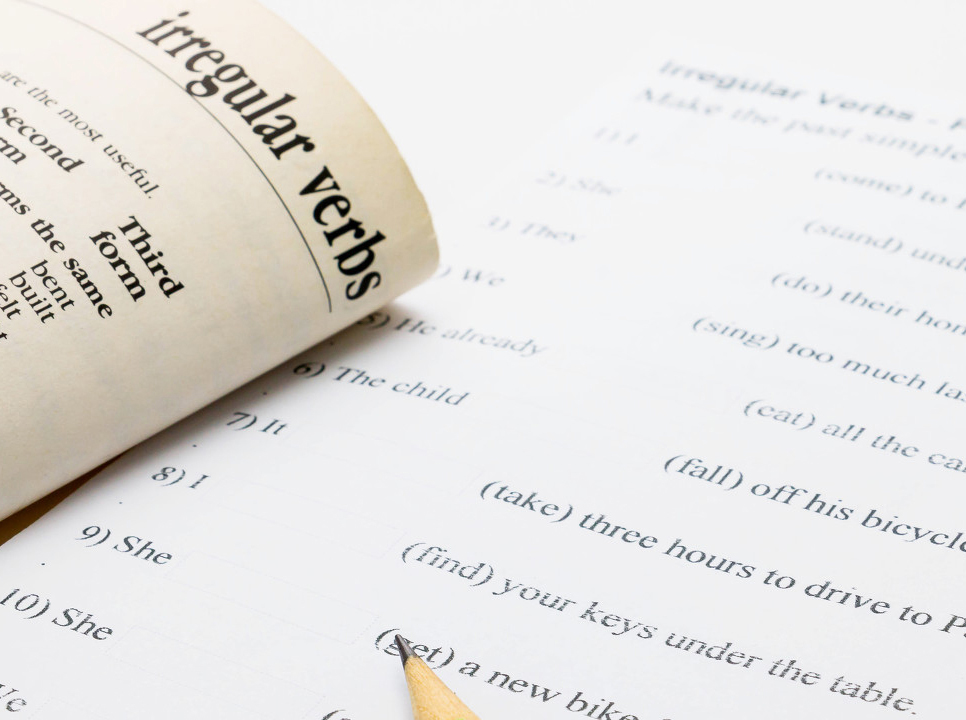 irregular verbs
are the most useful.
Second
Third
form
the same
bent
built
felt
Irregular Verbs -
Make the past simple
1) I (come) to
2) She (stand)
3) They (do) their
) We (sing) too much
5) He already (eat) all the
6) The child (fall) off his bicycle
7) It (take) three hours to drive to P
8) I (find) your keys under the table.
9) She (get) a new bike
10) She